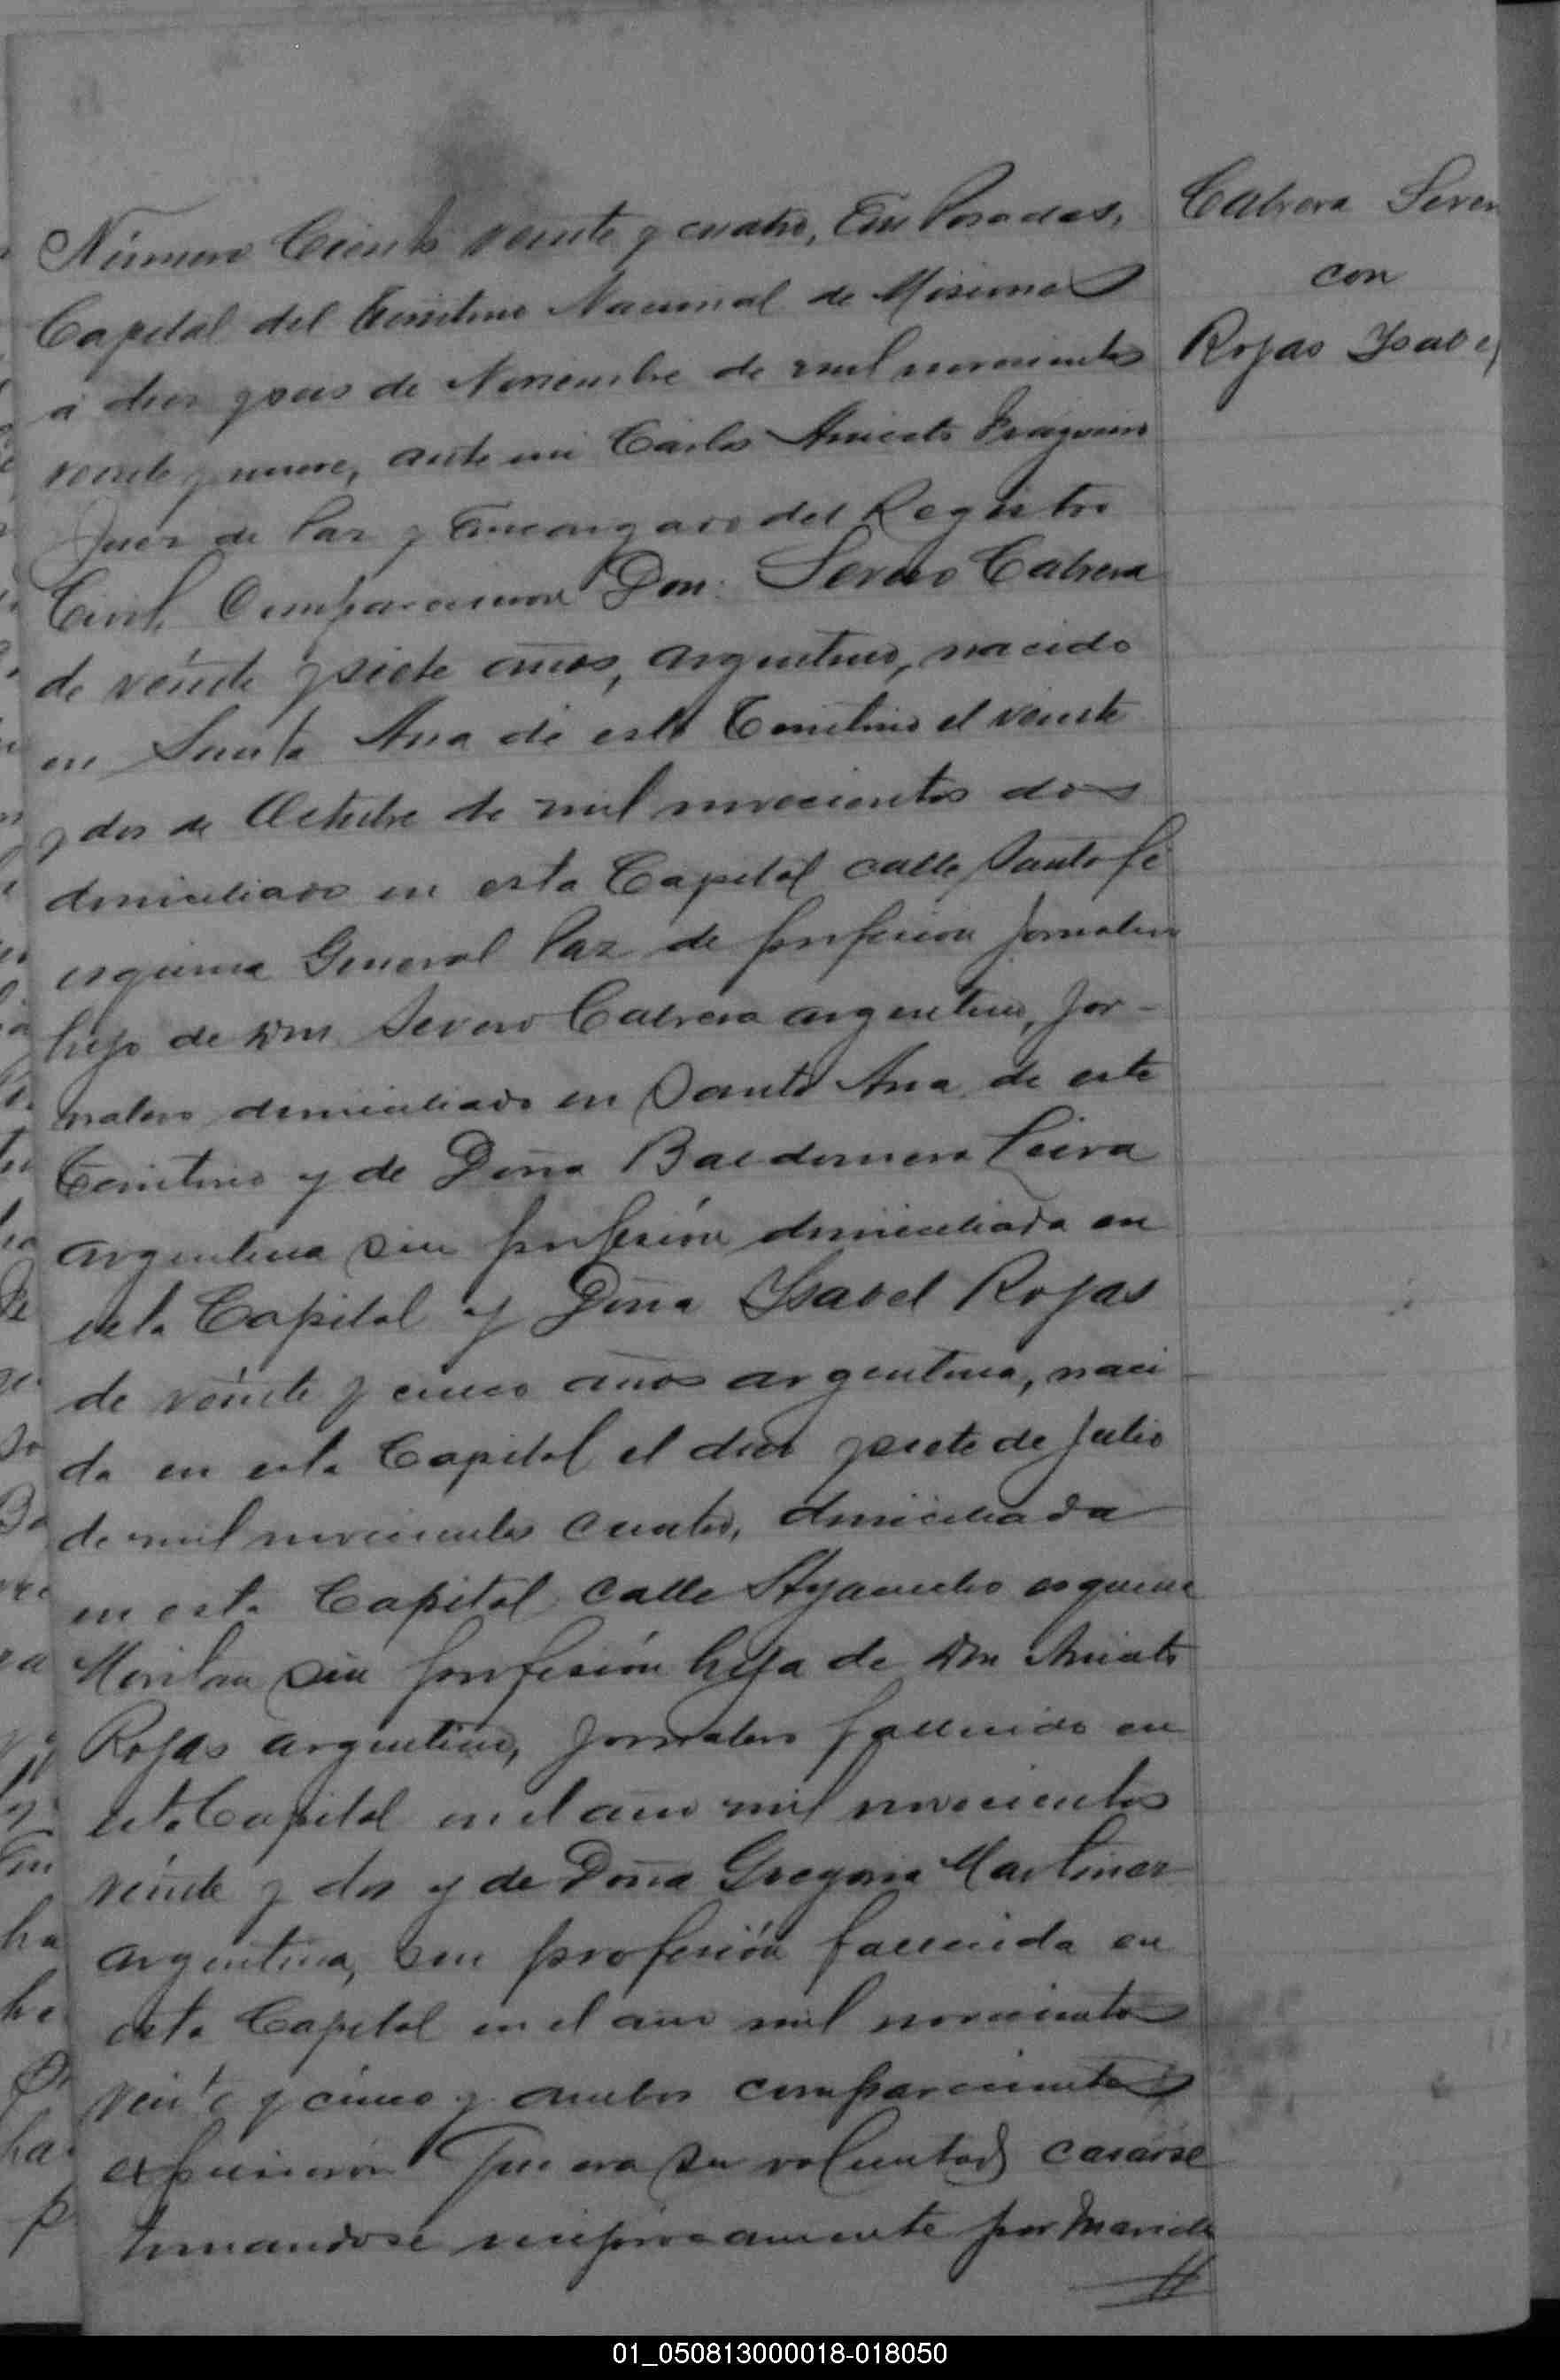 Número Ciento veinte y cuatro, En Posadas,
Capital del Territorio Nacional de Misiones
á diez y seis de Noviembre de mil novecientos
veinte y nueve, ante mi Carlos Aniceto
Juez de Paz y Encargado del Registro
Civil, Comparecieron Don: Severo Cabrera
de veinte y siete años, argentino, nacido
en Santa Ana de este Territorio el veinte
y dos de Octubre de mil novecientos dos
domiciliado en esta Capital calle Santa fé
esquina General Paz de profesión jornalero
hijo de Don Severo Cabrera argentino, jor-
nalero domiciliado en Santa Ana de este
Territorio y de Doña Baldomera Leiva
argentina sin profesión domiciliada en
esta Capital y Doña Ysabel Rojas
de veinte y cinco años argentina, naci
da en esta Capital el diez y siete de Julio
de mil novecientos cuatro, domiciliada
en esta Capital calle Ayacucho esquina
sin profesión hija de Don Aniceto
Rojas argentino, jornalero fallecido en
esta Capital en el año mil novecientos
veinte y dos y de Doña Gregoria Martinez
argentina, sin profesión fallecida en
esta Capital en el año mil novecientos
veinte y cinco y ambos comparecientes
expusieron Que era su voluntad casarse
tomandose reciprocamente por marido
//
Cabrera Sever
con
Rojas Ysabel
01_050813000018-018050